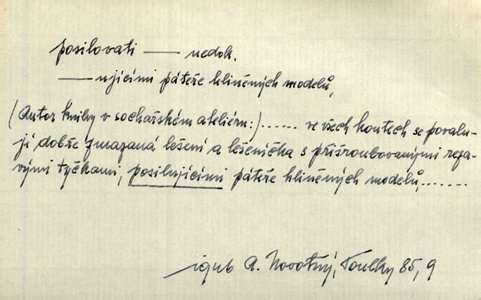 posilovati — nedok.
— ujícími páteře hliněných modelů,
(Autor knihy v sochařském ateliéru:) ...... ve všech koutech se povalu-
jí dobře zmazaná lešení a lešeníčka s přišroubovanými reza-
vými tyčkami, posilujícími páteře hliněných modelů, .......
A. Novotný, Toulky 85, 9